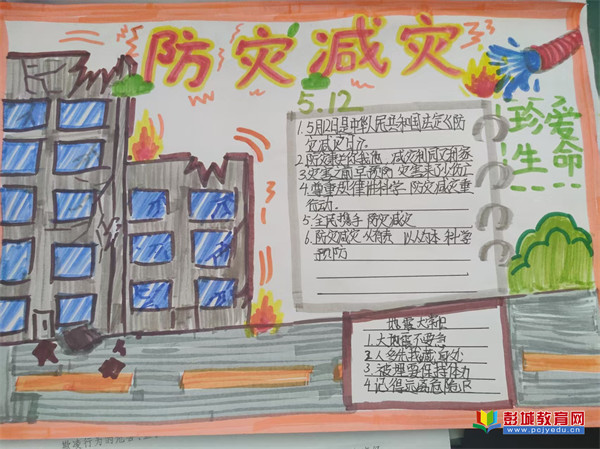 防灾减灾
5.12
珍爱
生命
1.5月12日是中华人民共和国法定义防
灾减灾日。
2.防灾
3.灾害面前早预防 灾害来了少伤亡
4.尊重规律讲科学 防灾减灾重
行动。
5.全民携手 防灾减灾
6.防灾减灾 从 以人为本 科学
预防
地震大
1.大地震不要急
2.人多 藏身处
3.被埋要保持体力
4.记得远离危险区
彭城教育网
www.pcjyedu.cn